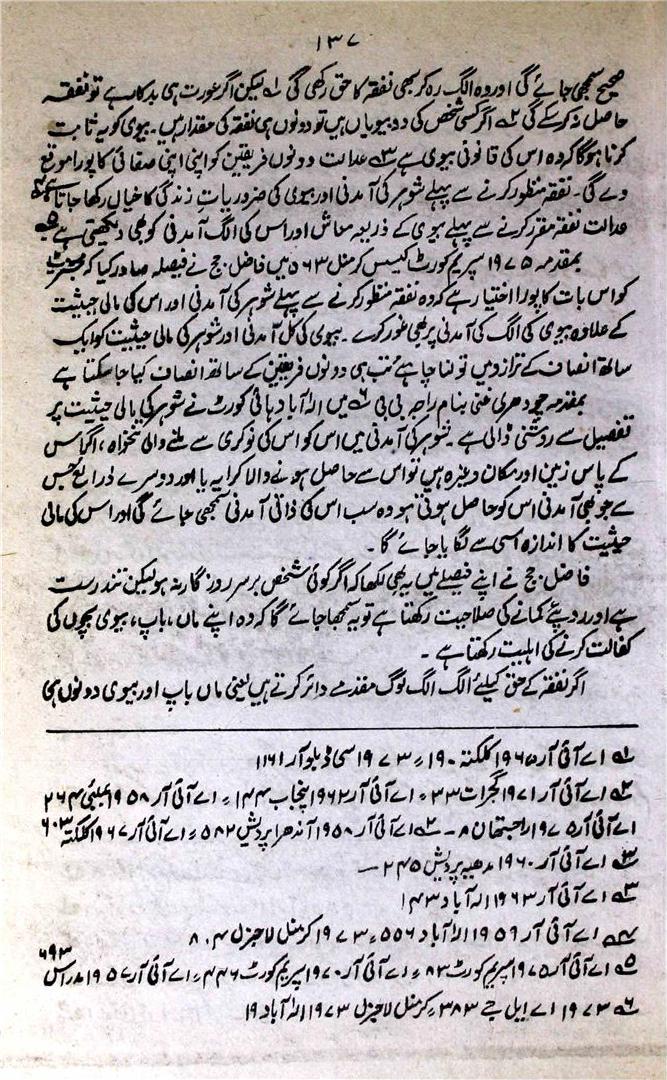 ۱۳۷
صحیح سمجھی جائے گی اور وہ الگ رہ کر بھی نفقہ کا حق رکھی گی ۱؎ لیکن اگر عورت ہی بدکار ہے تو نفقہ
حاصل نہ کر سکے گی ۲؎ اگر کسی شخص کی دو بیویاں ہیں تو دونوں ہی نفقہ کی مقدار ہیں۔ بیوی کو یہ ثابت
کرنا ہو گا کہ وہ اس کی قانونی بیوی ہے ۳؎ عدالت دونوں فریقین کو اپنی اپنی صفائی کا پورا موقع
دے گی۔ نفقہ منظور کرنے سے پہلے شوہر کی آمدنی اور بیوی کی ضروریات زندگی کا خیال رکھا جاتا ہے ۴؎
عدالت نفقہ مقرر کرنے سے پہلے بیوی کے ذریعہ معاش اور اس کی الگ آمدنی کو بھی دیکھتی ہے ۵؎
بمقدمہ ۱۹۷۵ سپریم کورٹ کیسس کرمنل ۵۶۳ میں فاضل جج نے فیصلہ صادر کیا کہ مجسٹریٹ
کو اس بات کا پورا اختیار ہے کہ وہ نفقہ منظور کرنے سے پہلے شوہر کی آمدنی اور اس کی مالی حیثیت
کے علاوہ بیوی کی الگ کی آمدنی پر بھی غور کرے۔ بیوی کی کل آمدنی اور شوہر کی مالی حیثیت کو ایک
ساتھ انصاف کے ترازو میں تولنا چاہئے تب ہی دونوں فریقین کے ساتھ انصاف کیا جا سکتا ہے
بمقدمہ چودھری غنی بنام راجہ بی بی ۶؎ میں الہ آباد ہائی کورٹ نے شوہر کی مالی حیثیت پر
تفصیل سے روشنی ڈالی ہے۔ شوہر کی آمدنی میں اس کو اس کی نوکری سے ملنے والی تنخواہ، اگر اس
کے پاس زمین اور مکان وغیرہ ہیں تو اس سے حاصل ہونے والا کرایہ یا اور دوسرے ذرائع جس
سے جو بھی آمدنی اس کو حاصل ہوتی ہو وہ سب اس کی ذاتی آمدنی سمجھی جائے گی اور اس کی مالی
حیثیت کا اندازہ اسی سے لگایا جائے گا۔
فاضل جج نے اپنے فیصلے میں یہ بھی لکھا کہ اگر کوئی شخص برسر روزگار نہ ہو لیکن تندرست
ہے اور روپیئے کمانے کی صلاحیت رکھتا ہے تو یہ سمجھا جائے گا کہ وہ اپنے ماں، باپ، بیوی بچوں کی
کفالت کرنے کی اہلیت رکھتا ہے۔
اگر نفقہ کے حق کیلئے الگ الگ لوگ مقدمے دائر کرتے ہیں یعنی ماں باپ اور بیوی دونوں ہی
۱؎ اے آئی آر ۱۹۶۵ کلکتہ ۱۹۰، ۱۹۷۳ سی ڈبلو آر ۱۱۶۱
۲؎ اے آئی آر ۱۹۷۱ گجرات ۳۳، اے آئی آر ۱۹۶۲ پنجاب ۱۴۴، اے آئی آر ۱۹۵۸ بمبئی ۲۶۴
اے آئی آر ۱۹۷۵ راجستھان ۸ ۔ ۲؎ اے آئی آر ۱۹۵۸ آندھرا پردیش ۵۸۲، اے آئی آر ۱۹۶۷ کلکتہ ۶۰۳
۳؎ اے آئی آر ۱۹۶۰ مدھیہ پردیش ۲۴۵ —
۳؎ اے آئی آر ۱۹۶۳ الہ آباد ۱۴۳
۴؎ اے آئی آر ۱۹۵۹ الہ آباد ۵۵۶، ۱۹۷۳ کرمنل لا جزل ۸۰۴
۵؎ اے آئی آر ۱۹۷۵ سپریم کورٹ ۸۳، اے آئی آر ۱۹۷۰ سپریم کورٹ ۴۴۶، اے آئی آر ۱۹۵۷ مدراس ۶۹۳
۶؎ ۱۹۷۳ اے ایل جے ۳۸۳، کرمنل لا جزل ۱۹۷۳ الہ آباد ۱۹